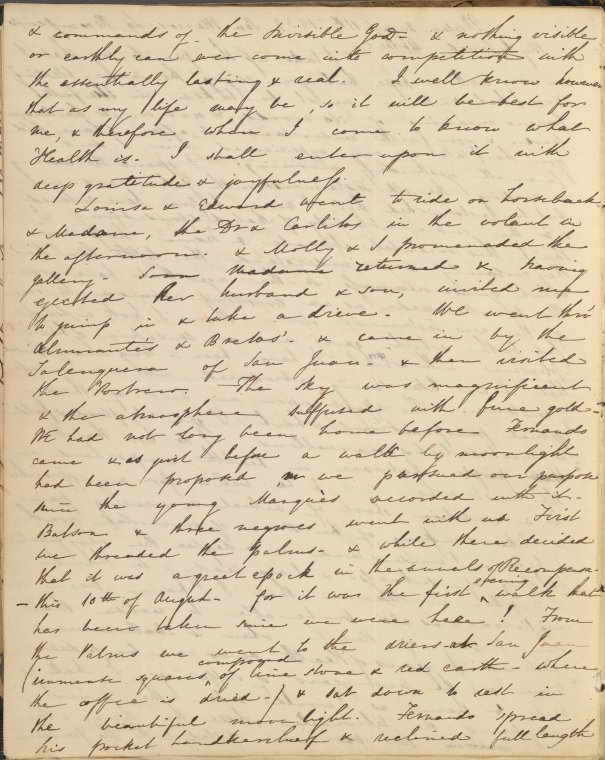 & commands of the Invisible God - & nothing visible
or earthly can ever come into competition with
the essentially lasting & real. I well know however
that as my life may be, so it will be best for
me, & therefore when I come to know what
Health is - I shall enter upon it with
deep gratitude & joyfulness.
Louisa & Edward went to ride on horseback.
& Madame, the Dr & Carlitos in the volant in
the afternoon. & Molly & I promenaded the
gallery - Soon Madame returned & having
ejected her husband & son, invited me
to jump in & take a drive. We went thro'
& Bretos' - & came in by the
of San Juan - & then visited
the Potrero. The sky was magnificent
& the atmosphere suffused with fine gold -
We had not long been home before Fernando
came & as just before a walk by moonlight
had been proposed, we pursued our purpose
the young Marquès accorded with it -
& three negroes went with us. First
we threaded the palms - & while there decided
that it was a great epoch in the annals of Recompensa -
- this 10th of August - for it was the first evening walk that
has been taken since we were here! From
the Palms we went to the driers at San Juan
(immense squares composed of lime stone & red earth - where
the coffee is dried -) & sat down to rest in
the beautiful moonlight. Fernando spread
his pocket handkerchief & reclined full length